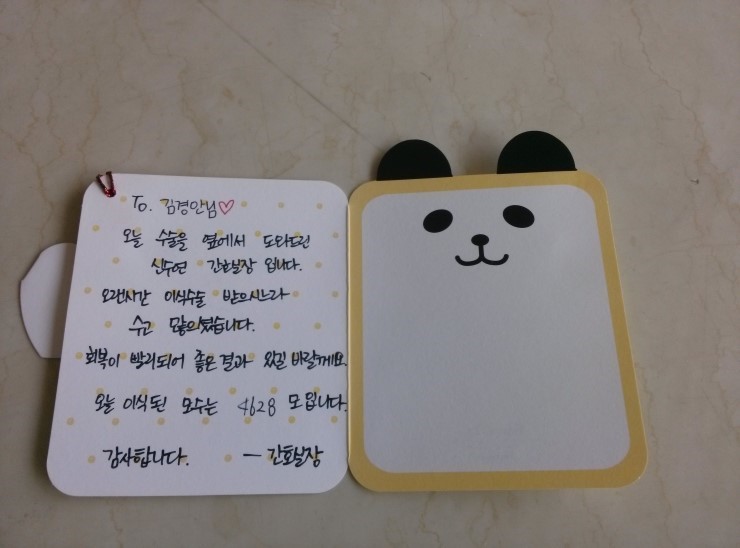 To. 김경안님♡
오늘 수술을 옆에서 도와드린
신수연 간호실장 입니다.
오랜시간 이식수술 받으시느라
수고 많으셨습니다.
회복이 빨리되어 좋은결과 있길 바랄께요.
오늘 이식된 모수는 4628 모입니다.
감사합니다. - 간호실장